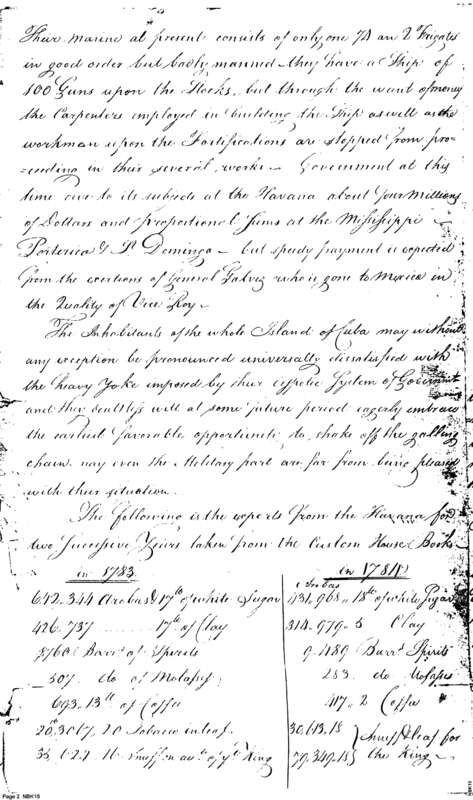 Their marine at present consists of only one 74 an 2 Frigates
in good order but badly manned – they have a Ship of
100 Guns upon the Stocks, but through the want of money
the Carpenters employed in building the Ship as well as the
workman upon the Fortifications are stopped from pro=
=ceeding in their several works – Government at this
time owe to its subjects at the Havana about four Millions
of Dollars and proportional Sums at the Mississippi –
Portorico & St Domingo – but speedy payment is expected
from the exertions of General Galvez who is gone to Mexico in
the Quality of Vice Roy –
The Inhabitants of the whole Island of Cuba may without
any exception be pronounced universally dissatisfied with
the heavy Yoke imposed by their despotic System of Governmt
and they doubtless will at some future period eagerly embrace
the earliest favorable opportunity to shake off the galling
chain, nay even the Military part are far from being pleased
with their situation
The following is the exports from the Havana for
two Successive Years taken from the Custom House Books
in 1783
in 1784
642.344 Arobas & 17 lb of white Sugar
431,968,, 18 lb of white Sugar
426.737 17 lb of Clay
314.979-5 Clay
Barrs of Spirits
9.489 Barrs Spirits
507. do of Molasses
283. do Molasses
693.13 lb of Coffee
417.. 2 Coffee
Tobacco in leaf.
30,613.18
Snuff & leaf for
Snuff on acct of ye King
79.349.15
the King –
Page 2 NBK15